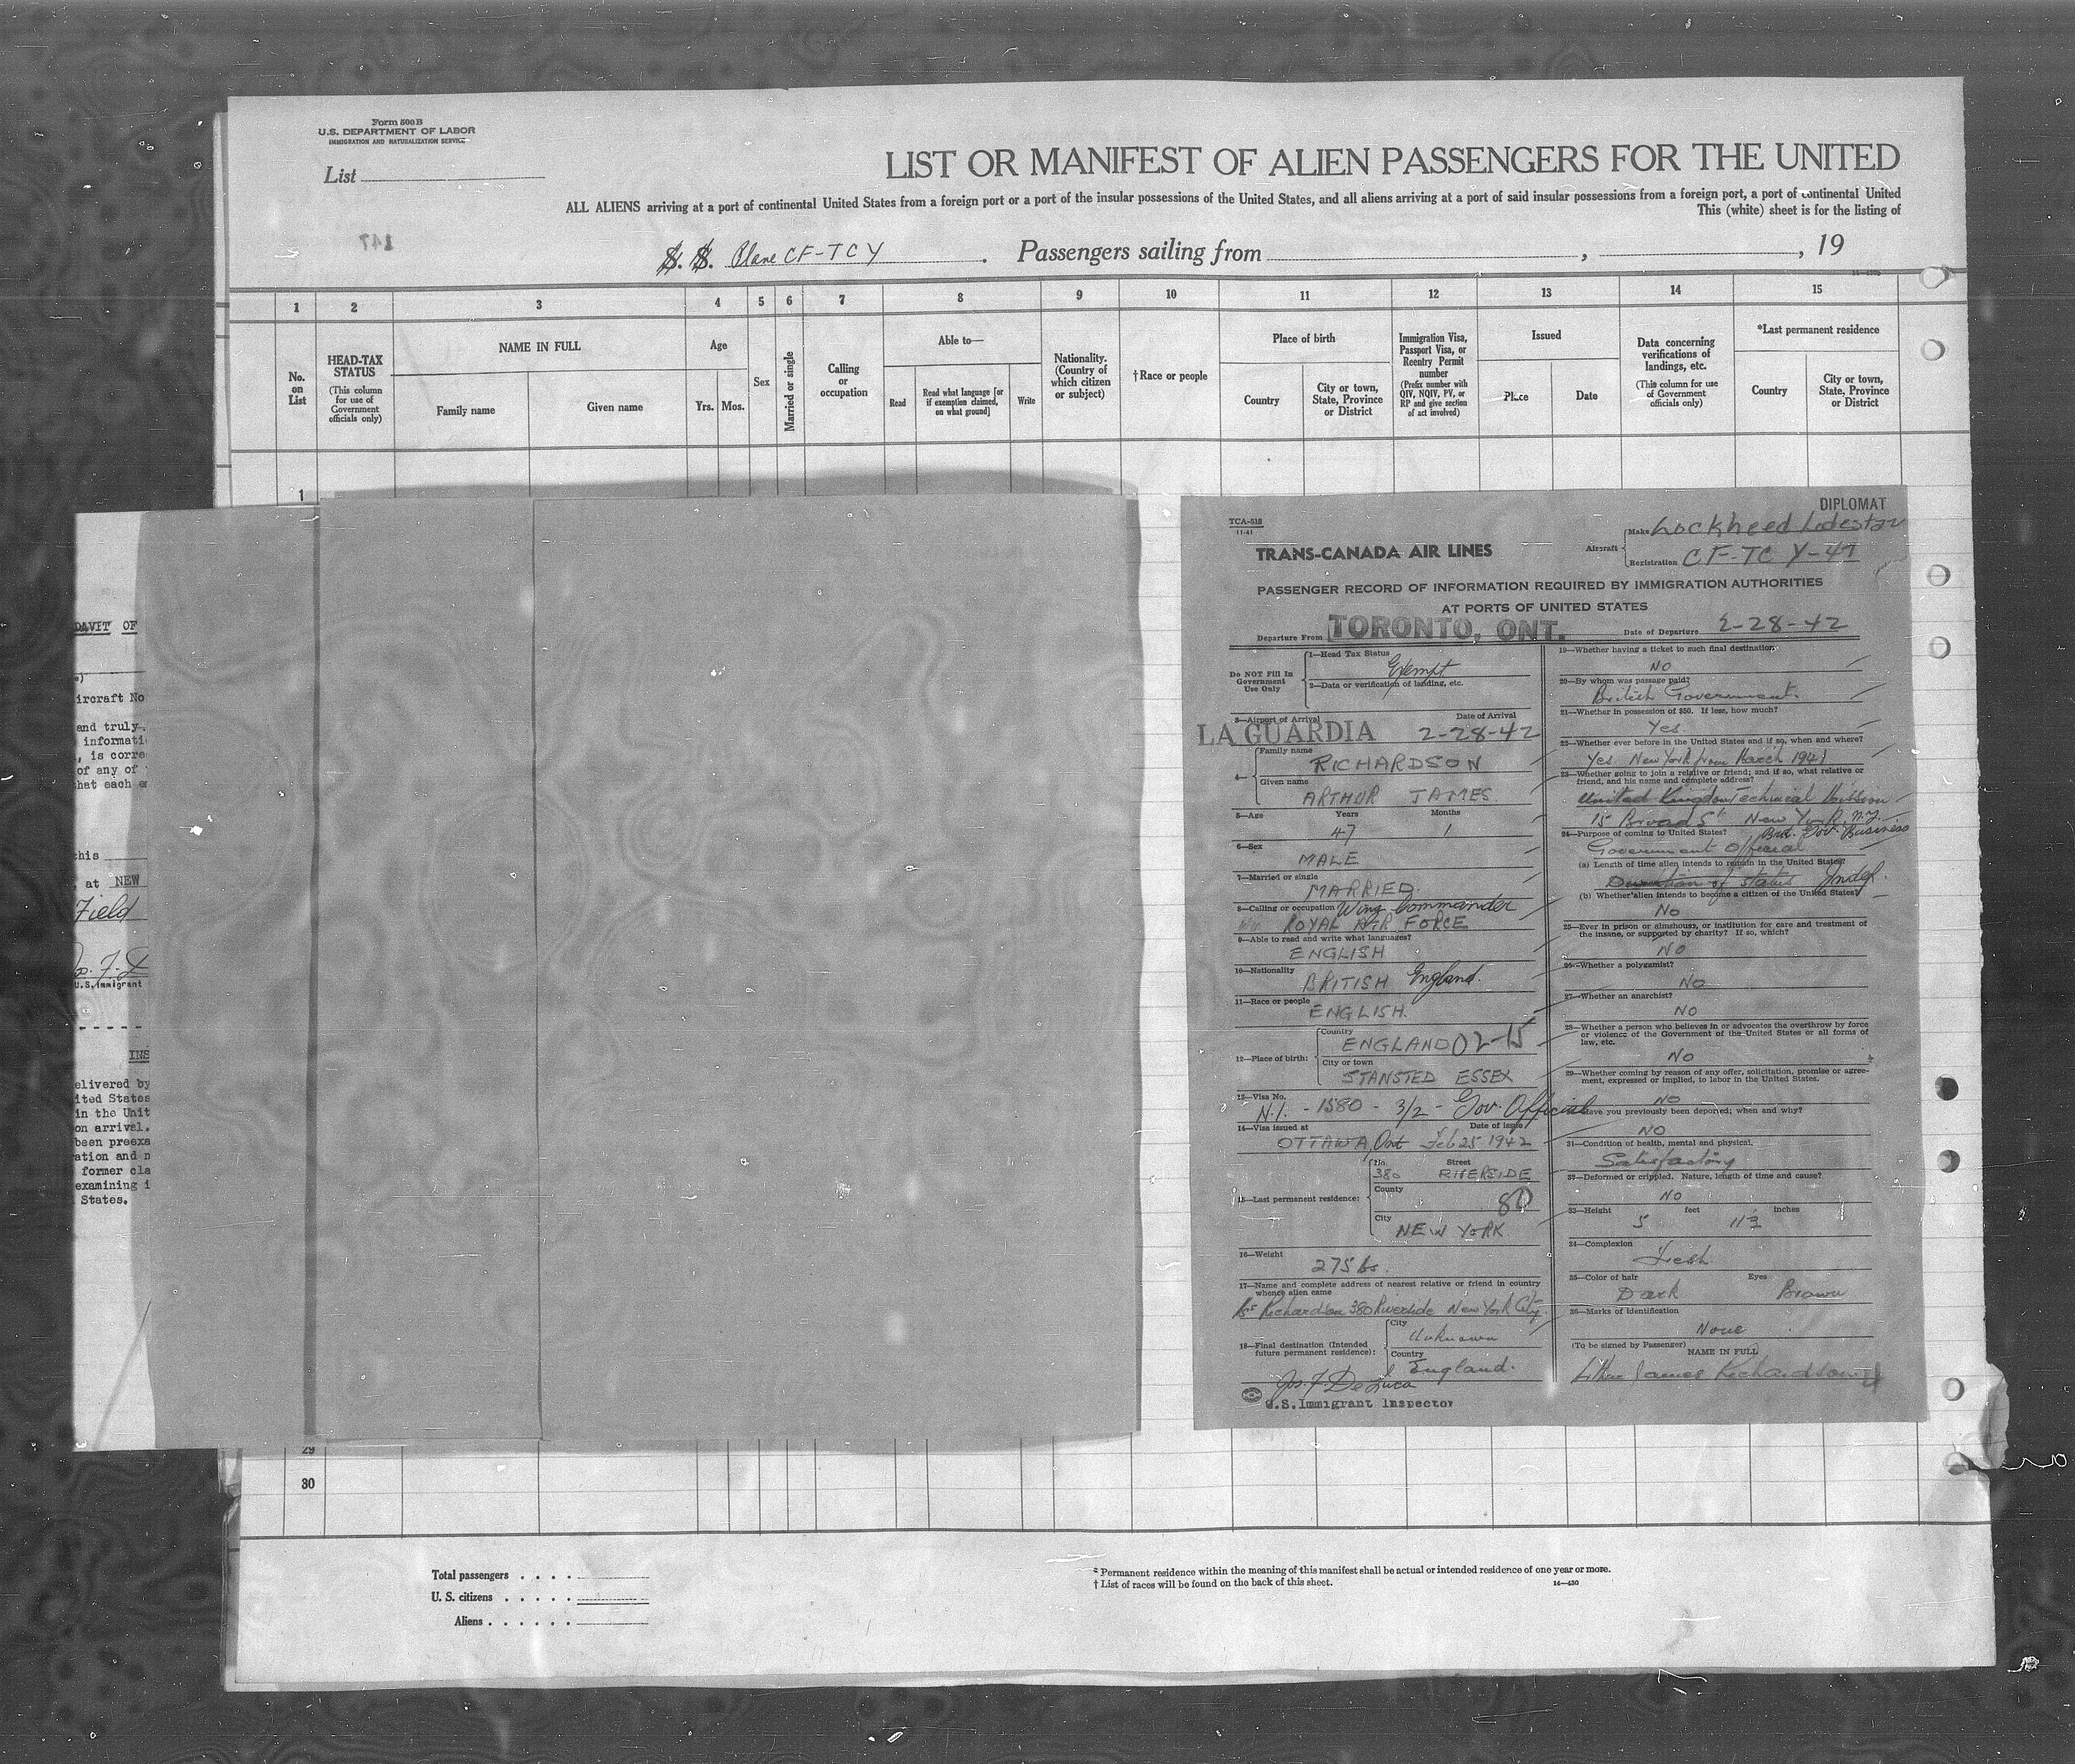 Form 500B
U.S. DEPARTMENT OF LABOR
IMMIGRATION AND NATURALIZATION SERVICE
List
LIST OR MANIFEST OF ALIEN PASSENGERS FOR THE UNITED
ALL ALIENS arriving at a port of continental United States from a foreign port or a port of the insular possessions of the United States, and all aliens arriving at a port of said insular possessions from a foreign port, a port of continental United
This (white) sheet is for the listing of
147
S. S. Plane CF-TCY . Passengers sailing from , , 19
1 2 3 4 5 6 7 8 9 10 11 12 13 14 15
No. on List
HEAD-TAX STATUS
(This column for use of Government officials only)
NAME IN FULL
Family name
Given name
Age
Yrs. Mos.
Sex
Married or single
Calling or occupation
Able to—
Read
Read what language [or if exemption claimed, on what ground]
Write
Nationality. (Country of which citizen or subject)
†Race or people
Place of birth
Country
City or town, State, Province or District
Immigration Visa, Passport Visa, or Reentry Permit number
(Prefix number with QIV, NQIV, PV, or RP and give section of act involved)
Issued
Place
Date
Data concerning verifications of landings, etc.
(This column for use of Government officials only)
*Last permanent residence
Country
City or town, State, Province or District
1
DAVIT OF
ircraft No
and truly
informati
, is corre
of any of
hat each
this
, at NEW
Field
U.S. Immigrant
INS
elivered by
ited States
in the Unit
on arrival.
been preexa
ration and n
former cla
examining i
States.
DIPLOMAT
TCA-518
11-41
TRANS-CANADA AIR LINES
Aircraft
Make Lockheed Lodestar
Registration CF-TC Y-47
PASSENGER RECORD OF INFORMATION REQUIRED BY IMMIGRATION AUTHORITIES
AT PORTS OF UNITED STATES
Departure From TORONTO, ONT. Date of Departure 2-28-42
Do NOT Fill In Government Use Only
1—Head Tax Status
Exempt
2—Data or verification of landing, etc.
3—Airport of Arrival Date of Arrival
LA GUARDIA 2-28-42
4— Family name
RICHARDSON
Given name
ARTHUR JAMES
5—Age Years Months
47 1
6—Sex
MALE
7—Married or single
MARRIED.
8—Calling or occupation Wing Commander
ROYAL AIR FORCE
9—Able to read and write what languages?
ENGLISH
10—Nationality
BRITISH England.
11—Race or people
ENGLISH.
12—Place of birth:
Country
ENGLAND 02-15
City or town
STANSTED ESSEX
13—Visa No.
N.I. - 1580 - 3/2 - Gov. Official
14—Visa issued at Date of issue
OTTAWA, Ont Feb 25 1942
15—Last permanent residence:
No. Street
380 RIVERSIDE
County
80
City
NEW YORK
16—Weight
275 lbs.
17—Name and complete address of nearest relative or friend in country whence alien came
Richardson 380 Riverside New York City.
18—Final destination (Intended future permanent residence):
City
Unknown
Country
England.
Jos. F. DeLuca
U.S. Immigrant Inspector
19—Whether having a ticket to such final destination.
NO
20—By whom was passage paid?
British Government.
21—Whether in possession of $50. If less, how much?
Yes.
22—Whether ever before in the United States and if so, when and where?
Yes New York from March 1941
23—Whether going to join a relative or friend; and if so, what relative or friend, and his name and complete address?
United Kingdom Technical Mission
15 Broad St New York, N.Y.
24—Purpose of coming to United States? Brit. Gov. Business
Government Official
(a) Length of time alien intends to remain in the United States?
Duration of status Indef.
(b) Whether alien intends to become a citizen of the United States?
No
25—Ever in prison or almshouse, or institution for care and treatment of the insane, or supported by charity? If so, which?
NO
26—Whether a polygamist?
NO
27—Whether an anarchist?
NO
28—Whether a person who believes in or advocates the overthrow by force or violence of the Government of the United States or all forms of law, etc.
NO
29—Whether coming by reason of any offer, solicitation, promise or agreement, expressed or implied, to labor in the United States.
NO
Have you previously been deported; when and why?
NO
31—Condition of health, mental and physical.
Satisfactory
32—Deformed or crippled. Nature, length of time and cause?
NO
33—Height feet inches
5 11½
34—Complexion
Fresh
35—Color of hair Eyes
Dark Brown
36—Marks of identification
None
(To be signed by Passenger)
NAME IN FULL
Arthur James Richardson
29
30
Total passengers . . . .
U. S. citizens . . . . .
Aliens . . . . . .
* Permanent residence within the meaning of this manifest shall be actual or intended residence of one year or more.
† List of races will be found on the back of this sheet.
14—430